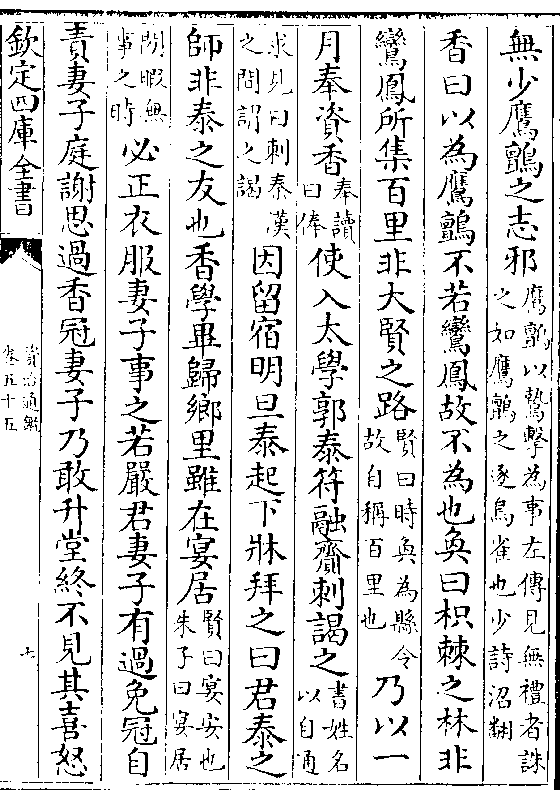 無少鷹鸇之志邪鷹鸇以鷙擊為事左傳見無禮者誅之如鷹鸇之逐鳥雀也少詩沼翻
香曰以為鷹鸇不若鸞鳳故不為也奐曰枳棘之林非
鸞鳳所集百里非大賢之路賢曰時奐為縣令故自稱百里也乃以一
月奉資香奉讀曰俸使入太學郭泰符融齎刺謁之書姓名以自通
求見曰刺秦漢之間謂之謁因留宿明旦泰起下牀拜之曰君泰之
師非泰之友也香學畢歸鄉里雖在宴居賢曰宴安也朱子曰宴居
閒暇無事之時必正衣服妻子事之若嚴君妻子有過免冠自
責妻子庭謝思過香冠妻子乃敢升堂終不見其喜怒
欽定四庫全書
資治通鑑
卷五十五
七